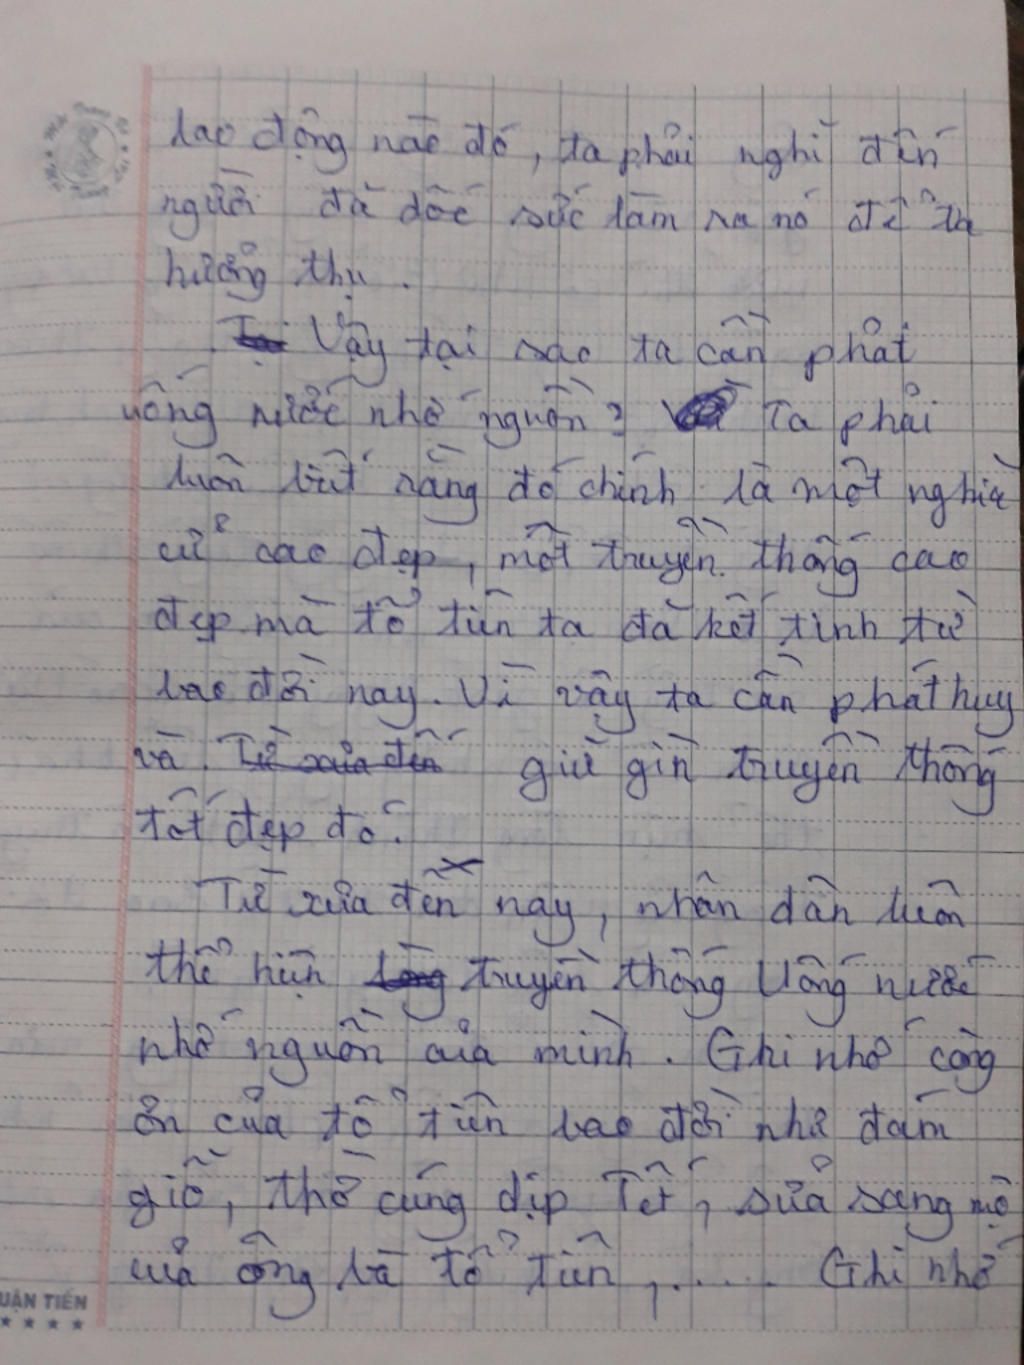 lao động nào đó, ta phải nghĩ đến
người đã dốc sức làm ra nó để ta
hưởng thụ.
Vậy tại sao ta cần phải
uống nước nhớ nguồn? Ta phải
luôn biết rằng đó chính là một nghĩa
cử cao đẹp, một truyền thống cao
đẹp mà tổ tiên ta đã kết tinh từ
bao đời nay. Vì vậy ta cần phát huy
và Từ xưa đến giữ gìn truyền thống
tốt đẹp đó.
Từ xưa đến nay, nhân dân luôn
thể hiện truyền thống Uống nước
nhớ nguồn của mình. Ghi nhớ công
ơn của tổ tiên bao đời như đám
giỗ, thờ cúng dịp Tết, sửa sang mộ
của ông bà tổ tiên,..... Ghi nhớ
UẬN TIẾN